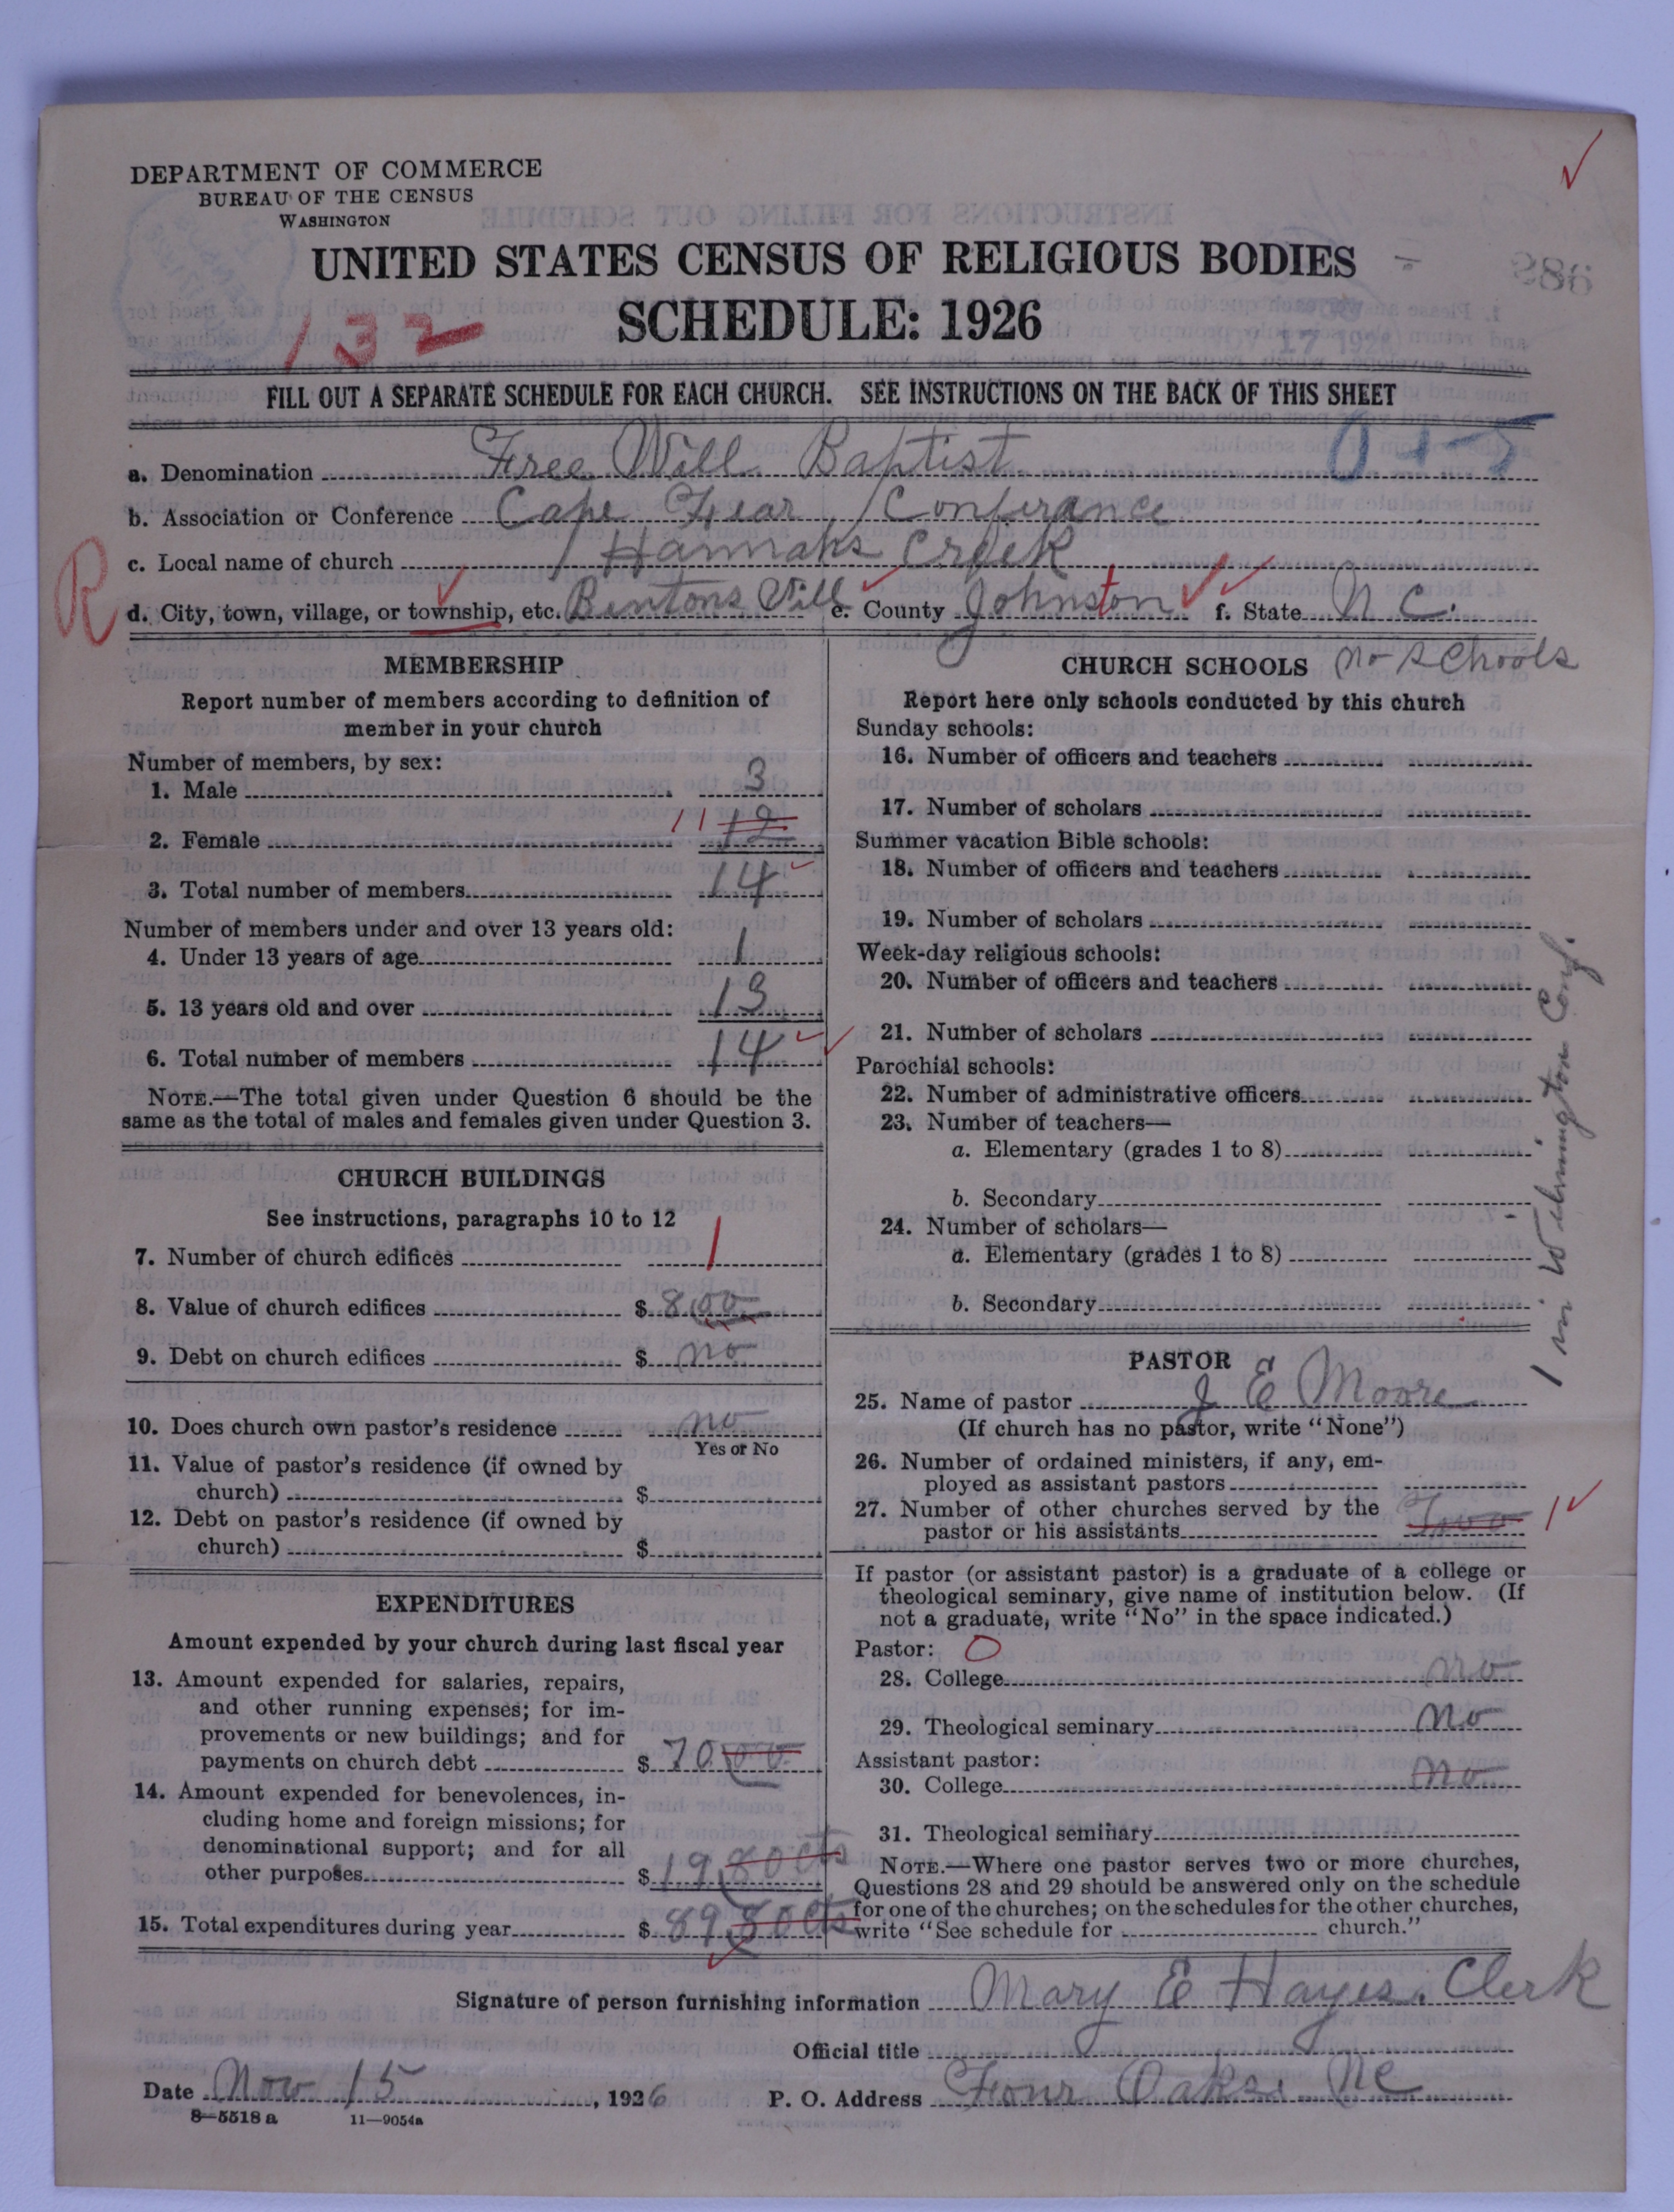 DEPARTMENT OF COMMERCE
BUREAU OF THE CENSUS
WASHINGTON
UNITED STATES CENSUS OF RELIGIOUS BODIES
SCHEDULE: 1926
132
986
FILL OUT A SEPARATE SCHEDULE FOR EACH CHURCH. SEE INSTRUCTIONS ON THE BACK OF THIS SHEET
a. Denomination Free Will Baptist
b. Association or Conference Cape Fear Conferance
c. Local name of church Hannahs Creek
R
d. City, town, village, or township, etc. Bentons Vill e. County Johnston f. State N C.
MEMBERSHIP
Report number of members according to definition of
member in your church
Number of members, by sex:
1. Male 3
2. Female 11 12
3. Total number of members 14
Number of members under and over 13 years old:
4. Under 13 years of age 1
5. 13 years old and over 13
6. Total number of members 14
NOTE.—The total given under Question 6 should be the
same as the total of males and females given under Question 3.
CHURCH BUILDINGS
See instructions, paragraphs 10 to 12
7. Number of church edifices 1
8. Value of church edifices $ 800
9. Debt on church edifices $ no
10. Does church own pastor's residence no
Yes or No
11. Value of pastor's residence (if owned by
church) $
12. Debt on pastor's residence (if owned by
church) $
EXPENDITURES
Amount expended by your church during last fiscal year
13. Amount expended for salaries, repairs,
and other running expenses; for im-
provements or new buildings; and for
payments on church debt $ 70 00
14. Amount expended for benevolences, in-
cluding home and foreign missions; for
denominational support; and for all
other purposes $ 19 80 cts
15. Total expenditures during year $ 89 80 cts
CHURCH SCHOOLS no schools
Report here only schools conducted by this church
Sunday schools:
16. Number of officers and teachers
17. Number of scholars
Summer vacation Bible schools:
18. Number of officers and teachers
19. Number of scholars
Week-day religious schools:
20. Number of officers and teachers
21. Number of scholars
Parochial schools:
22. Number of administrative officers
23. Number of teachers—
a. Elementary (grades 1 to 8)
b. Secondary
24. Number of scholars—
a. Elementary (grades 1 to 8)
b. Secondary
1 in Wilmington Conf.
PASTOR
25. Name of pastor J E Moore
(If church has no pastor, write "None")
26. Number of ordained ministers, if any, em-
ployed as assistant pastors
27. Number of other churches served by the
pastor or his assistants Two 1
If pastor (or assistant pastor) is a graduate of a college or
theological seminary, give name of institution below. (If
not a graduate, write "No" in the space indicated.)
Pastor: O
28. College no
29. Theological seminary no
Assistant pastor:
30. College no
31. Theological seminary
NOTE.—Where one pastor serves two or more churches,
Questions 28 and 29 should be answered only on the schedule
for one of the churches; on the schedules for the other churches,
write "See schedule for church."
Signature of person furnishing information Mary E Hayes. Clerk
Official title
Date Nov 15, 1926 P. O. Address Four Oaks. NC
8—5518 a 11—9054a